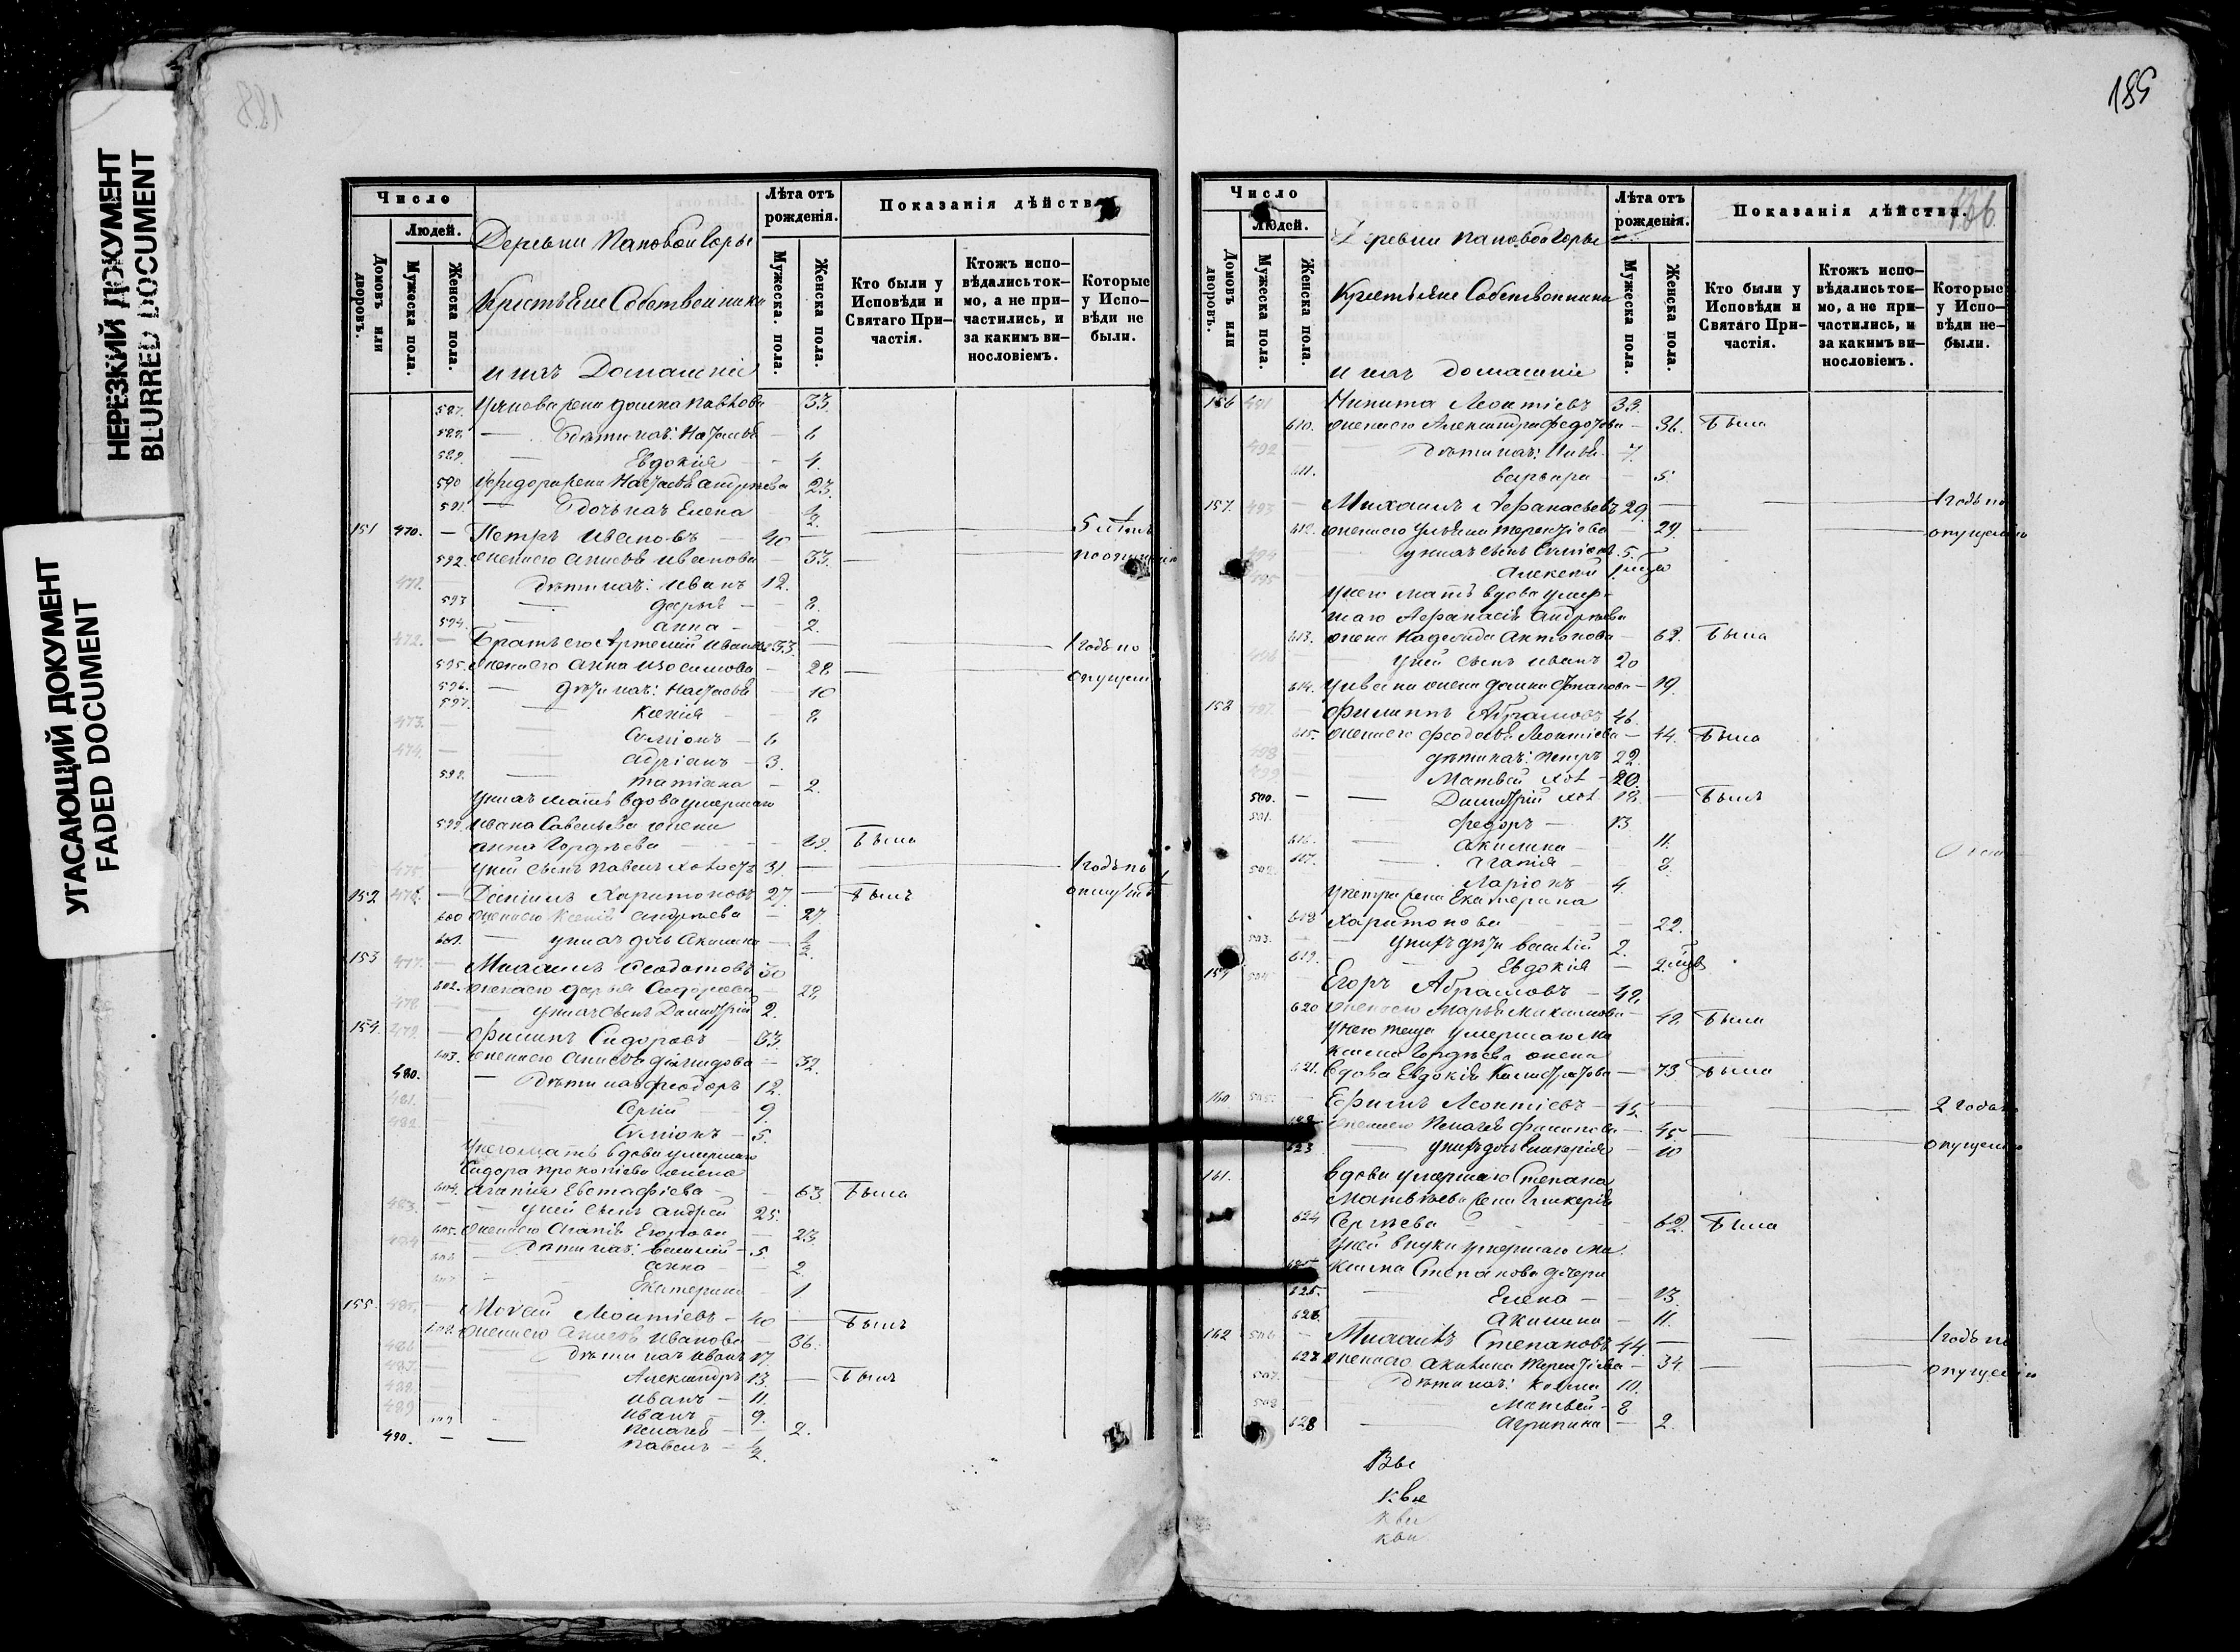 НЕРЕЗКИЙ ДОКУМЕНТ
BLURRED DOCUMENT
УГАСАЮЩИЙ ДОКУМЕНТ
FADED DOCUMENT
188
Число
Людей.
Домовъ или дворовъ.
Мужеска пола.
Женска пола.
Деревни Пановой Горы
Крестьяне Собственники
и ихъ Домашніе
Лѣта отъ рожденія.
Мужеска пола.
Женска пола.
Показанія дѣйства
Кто были у Исповѣди и Святаго При-
частія.
Ктожъ испо-
вѣдались ток-
мо, а не при-
частились, и
за какимъ ви-
нословіемъ.
Которые
у Испо-
вѣди не
были.
587. жена домна Павлова — 33.
588. — дѣти ихъ: Наталья — 6
589. — Евдокія — 4.
590 жена Наталья андреева 23.
591. — дочь ихъ Елена 1/2
151 470. — Петръ Ивановъ — 40 — 5 лѣтъ
592. жена его Анисья иванова — 33. — по опущенію
471. дѣти ихъ: иванъ 12.
593 — дарья — 8.
594. — анна — 2.
472. — Братъ его Артемій Ивановъ 33. — 1 годъ по
595. жена его анна изосимова — 28 — опущен
596. — дѣти ихъ: Наталья — 10
597. — Ксенія — 8
473. — Симіонъ — 6
474. — адріанъ — 3.
598. — татіана — 2.
у нихъ мать вдова умершаго
599. ивана Савельева жена
анна Гордѣева — 69. Была
475 — у ней сынъ Павелъ холостъ 31. — 1 годъ по
152 476. — Даніилъ Харитоновъ 27. — Былъ опущ
600 жена его Ксенія андреева — 27
601. — у нихъ дочь Акилина — 1/2
153 477. — Михаилъ Феодотовъ 30
602. жена его дарья Сидорова — 28
478 — у нихъ сынъ Димитрій 2.
154. 479. — Филипъ Сидоровъ — 33.
603. жена его Анисья — 32.
480. — дѣти ихъ феодоръ 12.
481. — Сергій — 9.
482. — Симіонъ — 5.
у него мать вдова умершаго
Сидора прокопіева жена
604. агапія Евстафіева — 63. Была
483. — у ней сынъ андрей 25.
605. жена его Агапія Егорова — 23.
484 — дѣти ихъ: василій — 5.
606 — анна — 2.
607 — Екатерина — 1
155. 485. — Моисей Леонтіевъ — 40 — Былъ
608. жена его Анисья Иванова — 36.
486 — дѣти ихъ иванъ 17.
487. — Александръ 13. — Былъ
488. иванъ — 11.
489 иванъ — 9.
609 — Пелагея — 2.
490. — Павелъ — 1/2.
189
186.
Число
Людей.
Домовъ или дворовъ.
Мужеска пола.
Женска пола.
Деревни Пановой Горы
Крестьяне Собственники
и ихъ домашніе
Лѣта отъ рожденія.
Мужеска пола.
Женска пола.
Показанія дѣйства.
Кто были у Исповѣди и Святаго При-
частія.
Ктожъ испо-
вѣдались ток-
мо, а не при-
частились, и
за какимъ ви-
нословіемъ.
Которые
у Испо-
вѣди не-
были.
156 491 Никита Леонтіевъ 33.
610. жена его Александра федорова — 36. Была
492 — дѣти ихъ: — 7.
611. варвара — 5.
157. 493 — Михаилъ Афанасьевъ 29. — 1 годъ по
612. жена его Ульяна терентіева — 29. — опущенію
494 у нихъ сынъ Симіонъ 5.
495 — Алексѣй
у него мать вдова умер-
шаго Афанасія андреева
613. жена Надежда антонова — 62. Была
496 у ней сынъ иванъ 20
614. у ивана жена домна — 19.
158 497. — Филиппъ Абрамовъ 46.
615. жена его феодосья Леонтіева — 44. Была
498 дѣти ихъ: петръ 22.
499 — Матвѣй хол. — 20.
500. — Димитрій хол. 18. — Былъ
501. федоръ — 13
616. — акилина — 11.
617. — агапія — 8.
502. — Ларіонъ 4.
у петра жена Екатерина
618 харитонова — 22.
503. — у нихъ дѣти василій 2.
619. — Евдокія —
159 504 Егоръ Абрамовъ — 48.
620 жена его Марья Максимова — 48 Была
у него теща умершаго Ма
ксима Гордѣева жена
621. вдова Евдокія Калистратова — 73 Была
160 505. — Ефимъ Леонтіевъ — 45. — 2 года
622 жена его Пелагея — 45.
623 — у нихъ дочь Гликерія — 10 опущенію
161. вдова умершаго Степана
Матвѣева жена Гликерія
624 Сергѣева — 62. Была
у ней внуки умершаго Ма
ксима Степанова дочери
625. — Елена — 13.
626. — Акилина — 11.
162 506 — Михаилъ Степановъ 44. — 1 годъ по
627 жена его акилина терентіева — 34 — опущенію
507. дѣти ихъ: Козма 10.
508 — Матвѣй — 8
628 — Агрипина — 2.